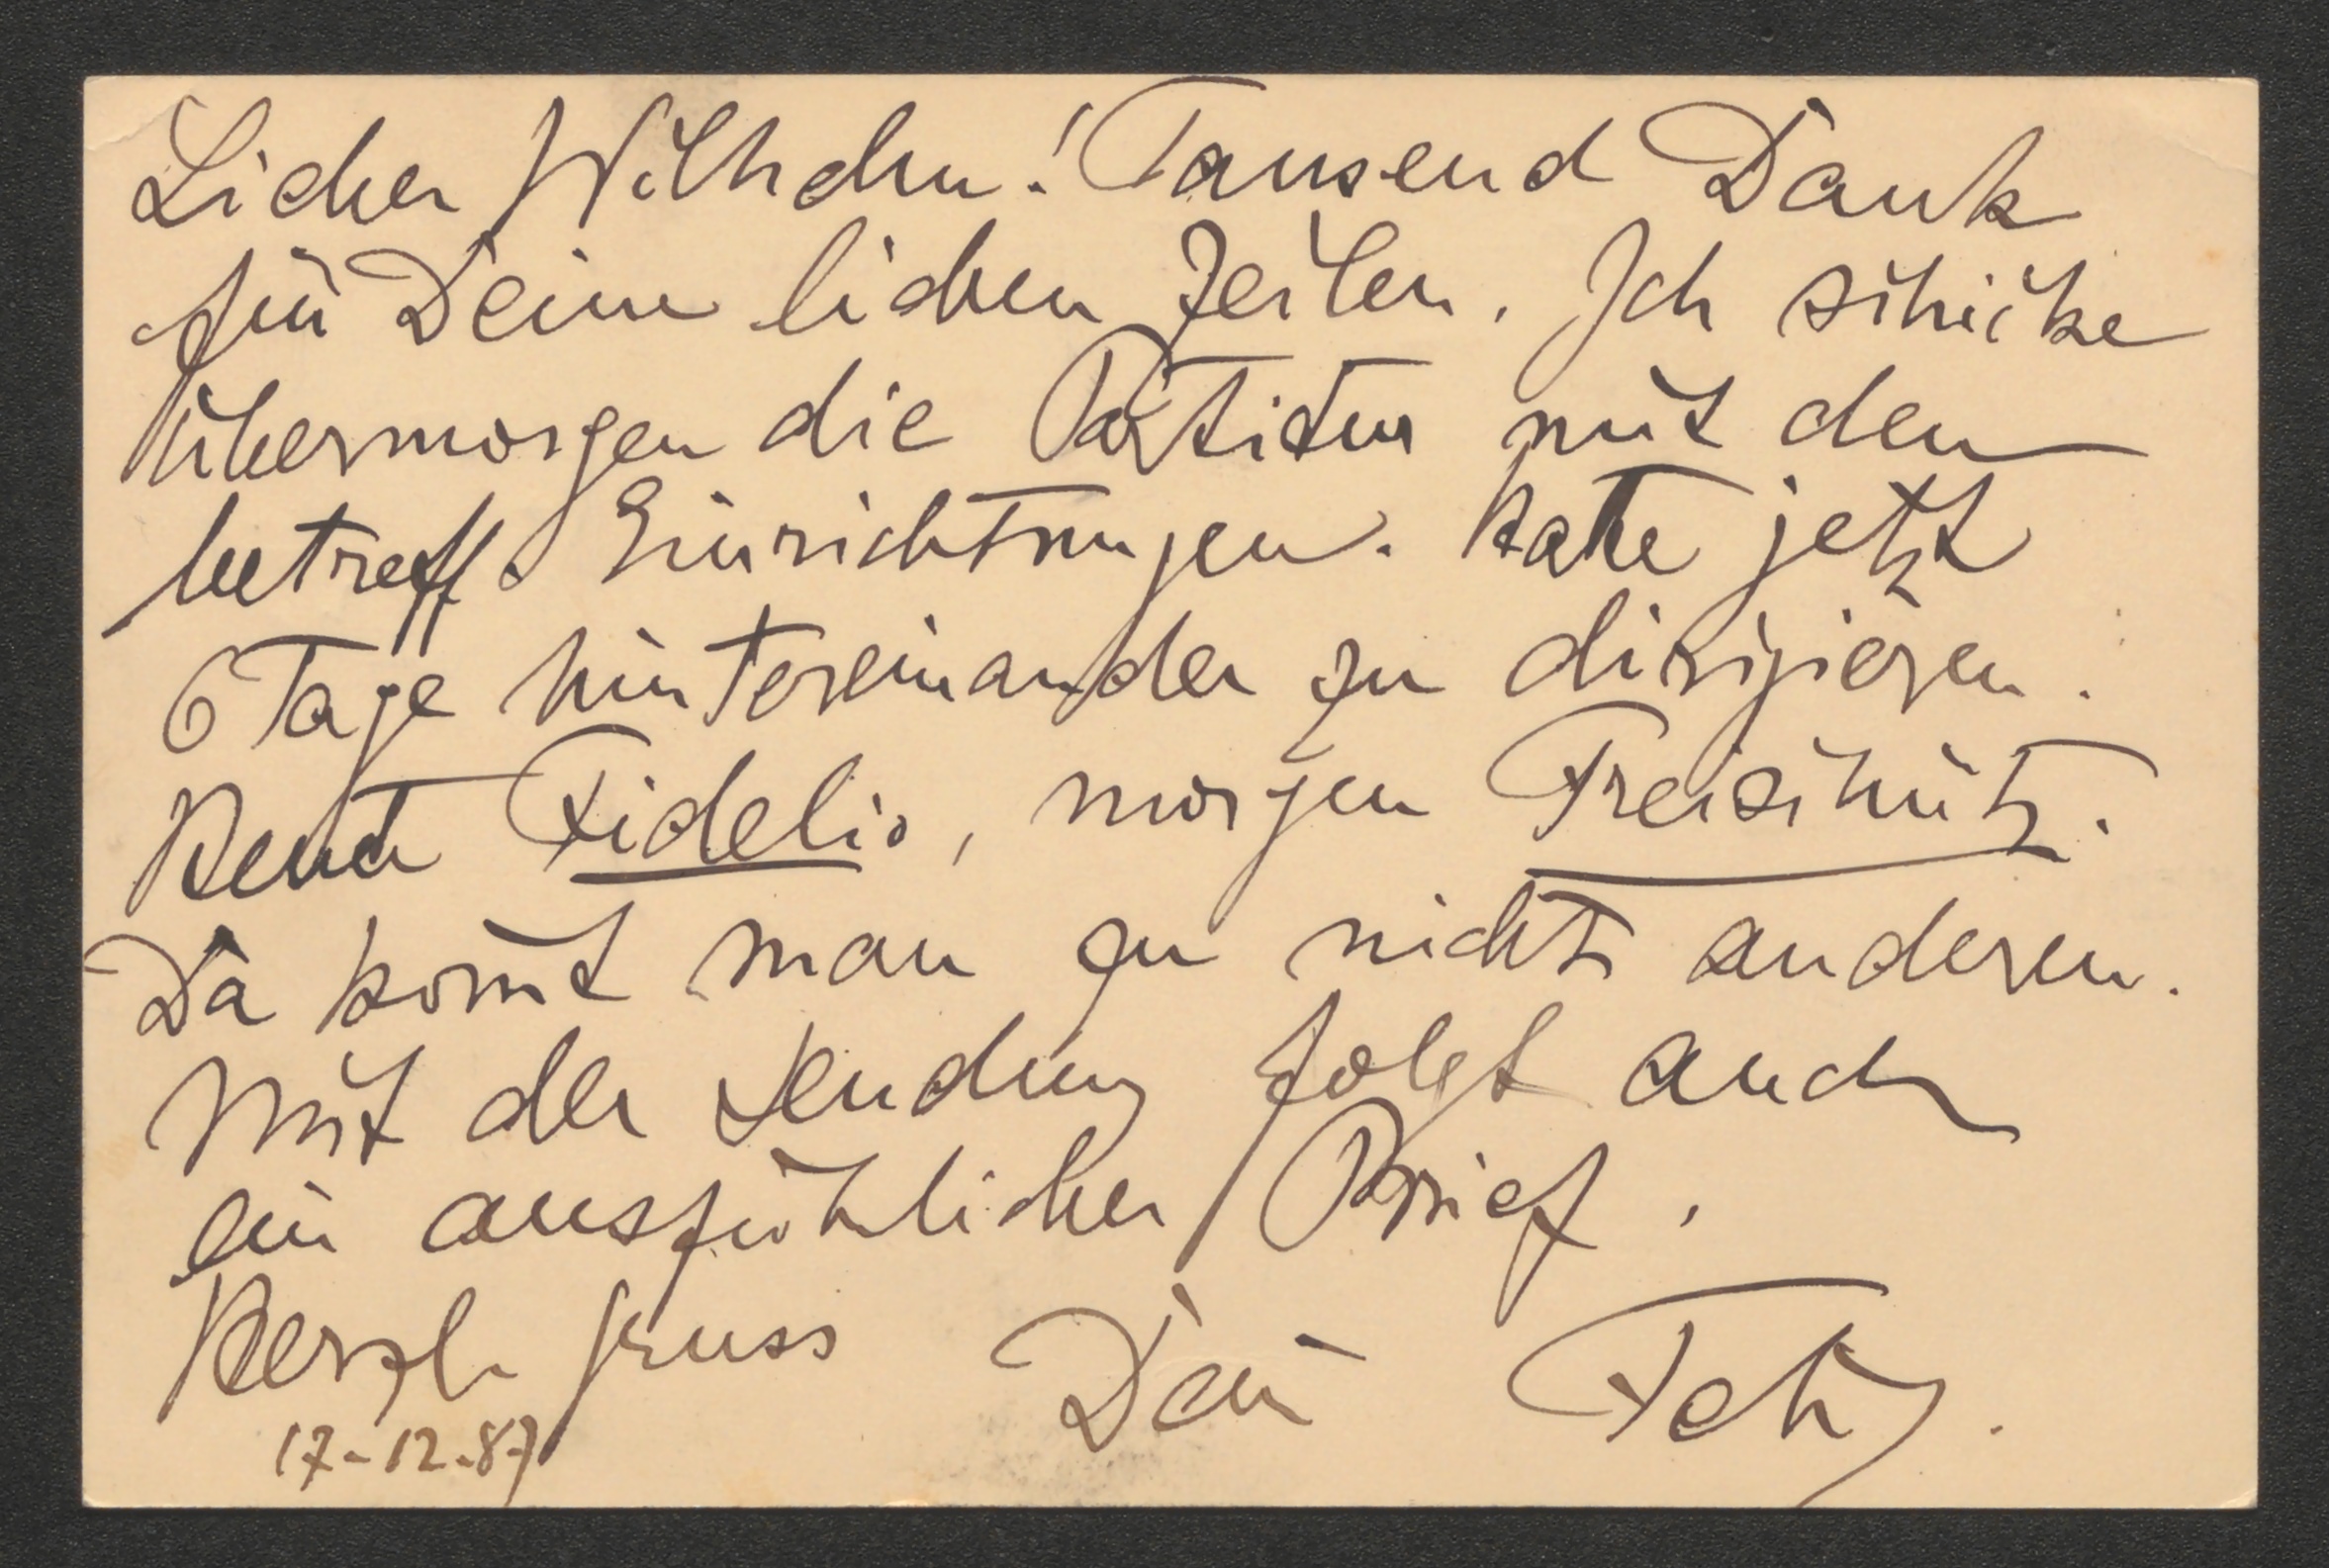 Lieber Wilhelm! Tausend Dank
für Deine lieben Zeilen. Ich schicke
übermorgen die Partitur mit den
betreff. Einrichtungen. Hatte jetzt
6 Tage hintereinander zu dirigieren.
Heute Fidelio, morgen Freischütz.
Da kom̄t man zu nichts anderen.
Mit der Sendung folgt auch
ein ausführlicher Brief.
Herzl. Gruss Dein
17-12-87